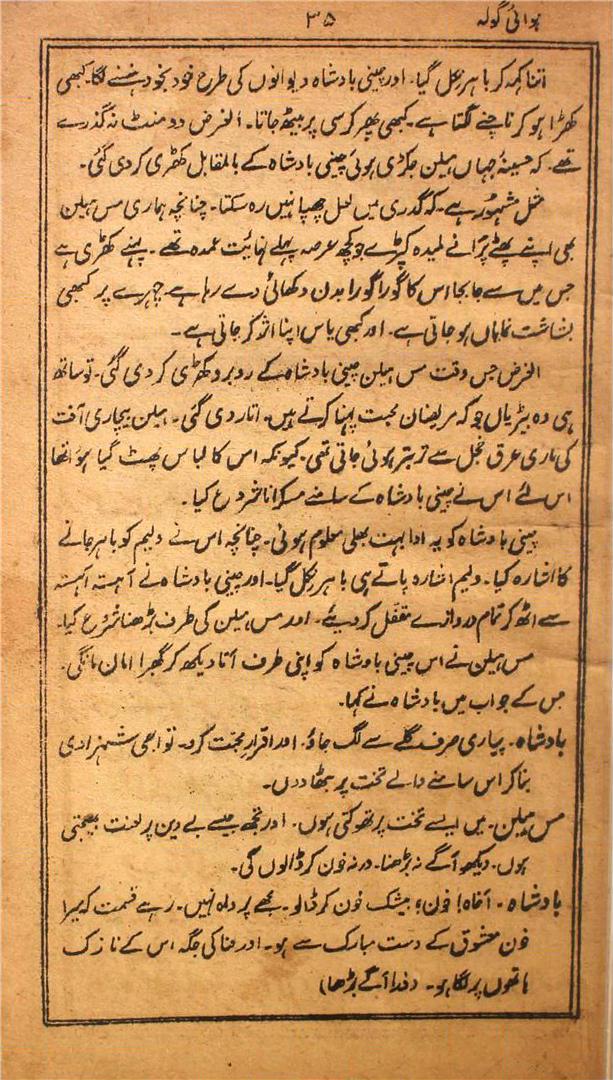 ہوائی گولہ ۳۵
اتنا کہہ کر باہر نکل گیا۔ اور چینی بادشاہ دیوانوں کی طرح خود بخود ہنسنے لگا۔ کبھی
کھڑا ہو کر ناچنے لگتا ہے۔ کبھی پھر کرسی پر بیٹھ جاتا۔ الغرض دو منٹ نہ گذرے
تھے۔ کہ حسینۂ جہاں ہیلن جکڑی ہوئی چینی بادشاہ کے بالمقابل کھڑی کر دی گئی۔
مثل مشہور ہے۔ کہ گدری میں لعل چھپا نہیں رہ سکتا۔ چنانچہ ہماری مس ہیلن
بھی اپنے پھٹے پرانے لمیدہ کپڑے جو کچھ عرصہ پہلے نہائیت عمدہ تھے۔ پہنے کھڑی ہے
جس میں سے جابجا اس کا گورا گورا بدن دکھائی دے رہا ہے چہرے پر کبھی
بشاشت نمایاں ہو جاتی ہے۔ اور کبھی یاس اپنا اثر کر جاتی ہے۔
الغرض جس وقت مس ہیلن چینی بادشاہ کے روبرو کھڑی کر دی گئی۔ تو ساتھ
ہی وہ بیڑیاں جو کہ مریضان محبت پہنا کرتے ہیں۔ اتار دی گئی۔ ہیلن بیچاری آفت
کی ماری عرق خجل سے تربتر ہوئی جاتی تھی۔ کیونکہ اس کا لباس پھٹ گیا ہوا تھا
اس لئے اس نے چینی بادشاہ کے سامنے مسکرانا شروع کیا۔
چینی بادشاہ کو یہ ادا بہت بھلی معلوم ہوئی۔ چنانچہ اس نے ولیم کو باہر جانے
کا اشارہ کیا۔ ولیم اشارہ پاتے ہی باہر نکل گیا۔ اور چینی بادشاہ نے آہستہ آہستہ
سے اٹھ کر تمام دروازے مقفل کر دیئے۔ اور مس ہیلن کی طرف بڑھنا شروع کیا۔
مس ہیلن نے اس چینی بادشاہ کو اپنی طرف آتا دیکھ کر گھبرا امان مانگی۔
جس کے جواب میں بادشاہ نے کہا۔
بادشاہ۔ پیاری صرف گلے سے لگ جاؤ۔ اور اقرار محبت کرو۔ تو ابھی شہزادی
بنا کر اس سامنے والے تخت پر بٹھا دوں۔
مس ہیلن۔ میں ایسے تخت پر تھوکتی ہوں۔ اور تجھ جیسے بے دین پر لعنت بھیجتی
ہوں۔ دیکھو آگے نہ بڑھنا۔ ورنہ خون کر ڈالوں گی۔
بادشاہ۔ آخاہ! خون؛ بیشک خون کر ڈالو۔ مجھے پرواہ نہیں۔ زہے قسمت کہ میرا
خون معشوق کے دست مبارک سے ہو۔ اور حنا کی جگہ اس کے نازک
ہاتھوں پر لگا ہو۔ (ذرا آگے بڑھا)